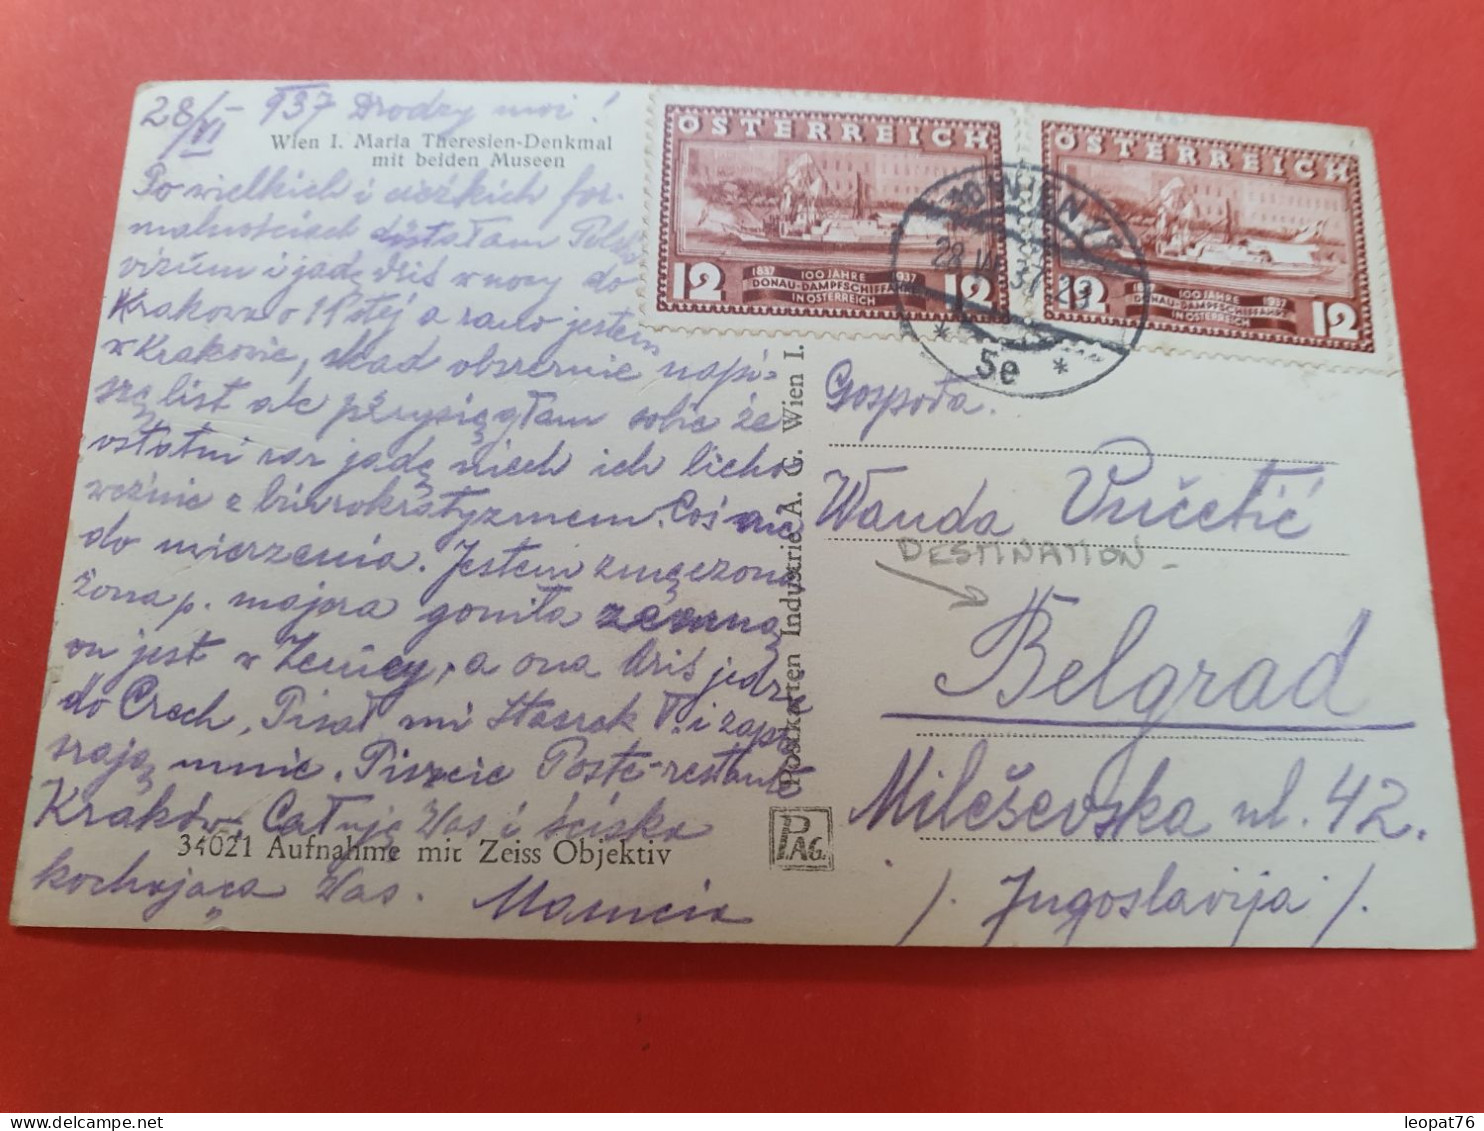 28/VI – 937 Drodzy moi!
Wien I. Maria Theresien-Denkmal
mit beiden Museen
Po wielkich i ciężkich for-
malnościach dostałam Polsk
vizum i jadę dziś w nocy do
Krakowa o 11 stej a rano jestem
w Krakowie, skąd obszernie napi-
szę list ale przysięgłam sobie że
ostatni raz jadę niech ich licho
weźnie z bürokratyzmem. Coś nie
do wierzenia. Jestem zmęczona
żona p. majora goniła zemną
on jest w Zenicy, a ona dziś jedzie
do Czech, Pisał mi Staszek T. i zapra
szają mnie. Piszcie Poste-restante
Kraków. Całuję Was i ściska
34021 Aufnahme mit Zeiss Objektiv
kochająca Was. Mamcia
Postkarten Industrie A. G. Wien I.
PAG.
ÖSTERREICH
12 12
1837 100 JAHRE 1937
DONAU-DAMPFSCHIFFAHRT
IN ÖSTERREICH
ÖSTERREICH
12 12
1837 100 JAHRE 1937
DONAU-DAMPFSCHIFFAHRT
IN ÖSTERREICH
WIEN
28.VI.37
* 5e *
Gospođa.
Wanda Vučetić
DESTINATION -
Belgrad
Mileševska ul. 42.
/. Jugoslavija /.
leopat76